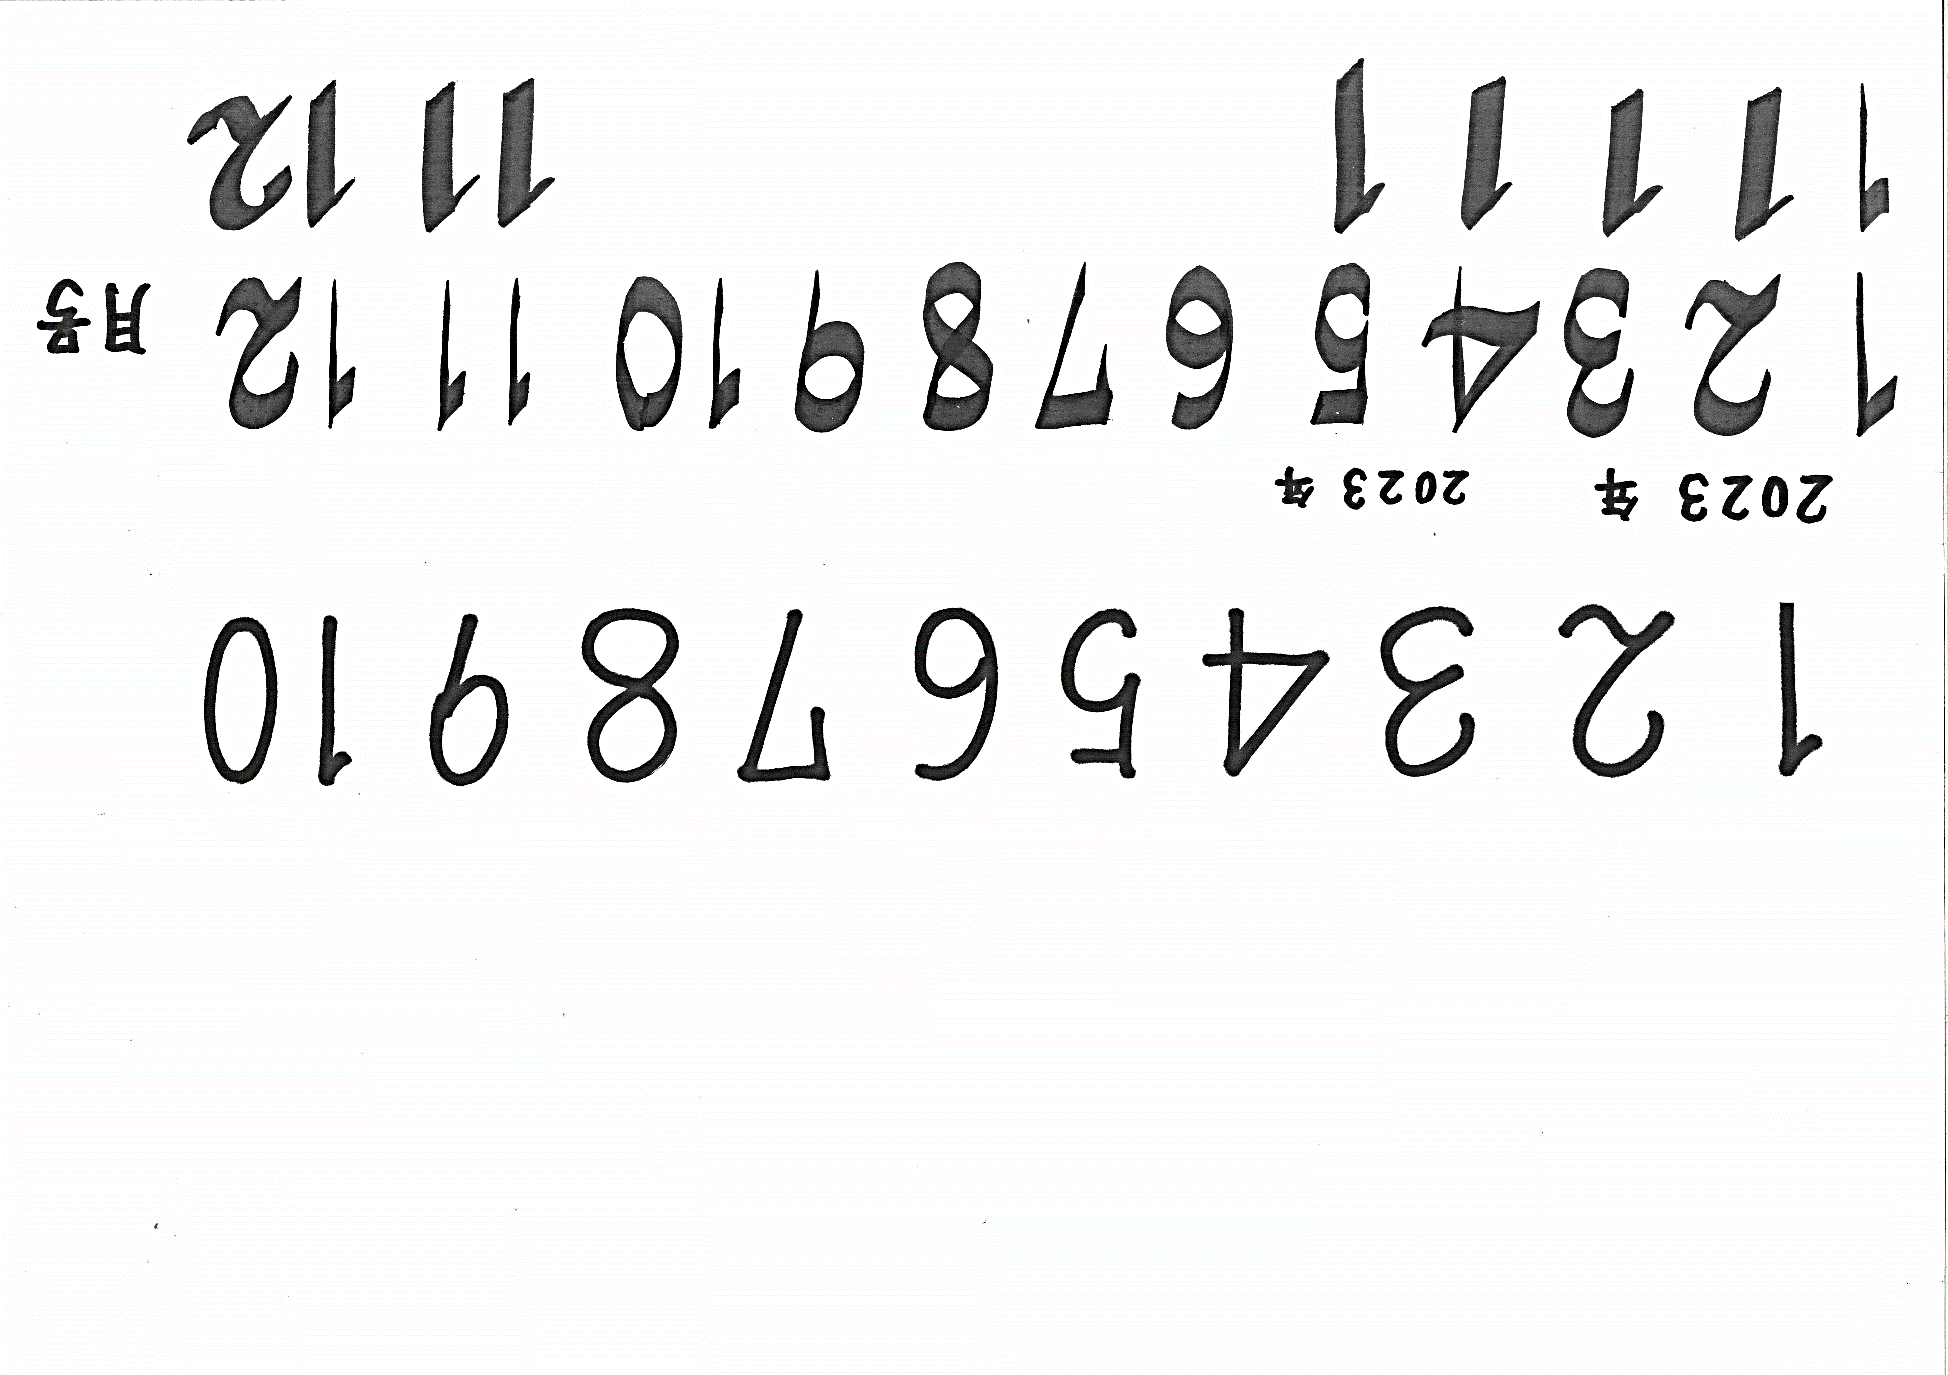 1 2 3 4 5 6 7 8 9 10
2023年 2023年
1 2 3 4 5 6 7 8 9 10 11 12 月号
1 1 1 1 1 11 12